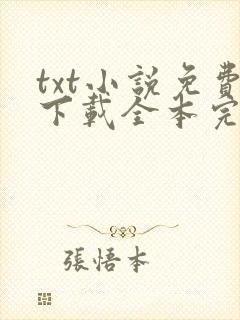 txt小說免費
下載全本完
張悟本